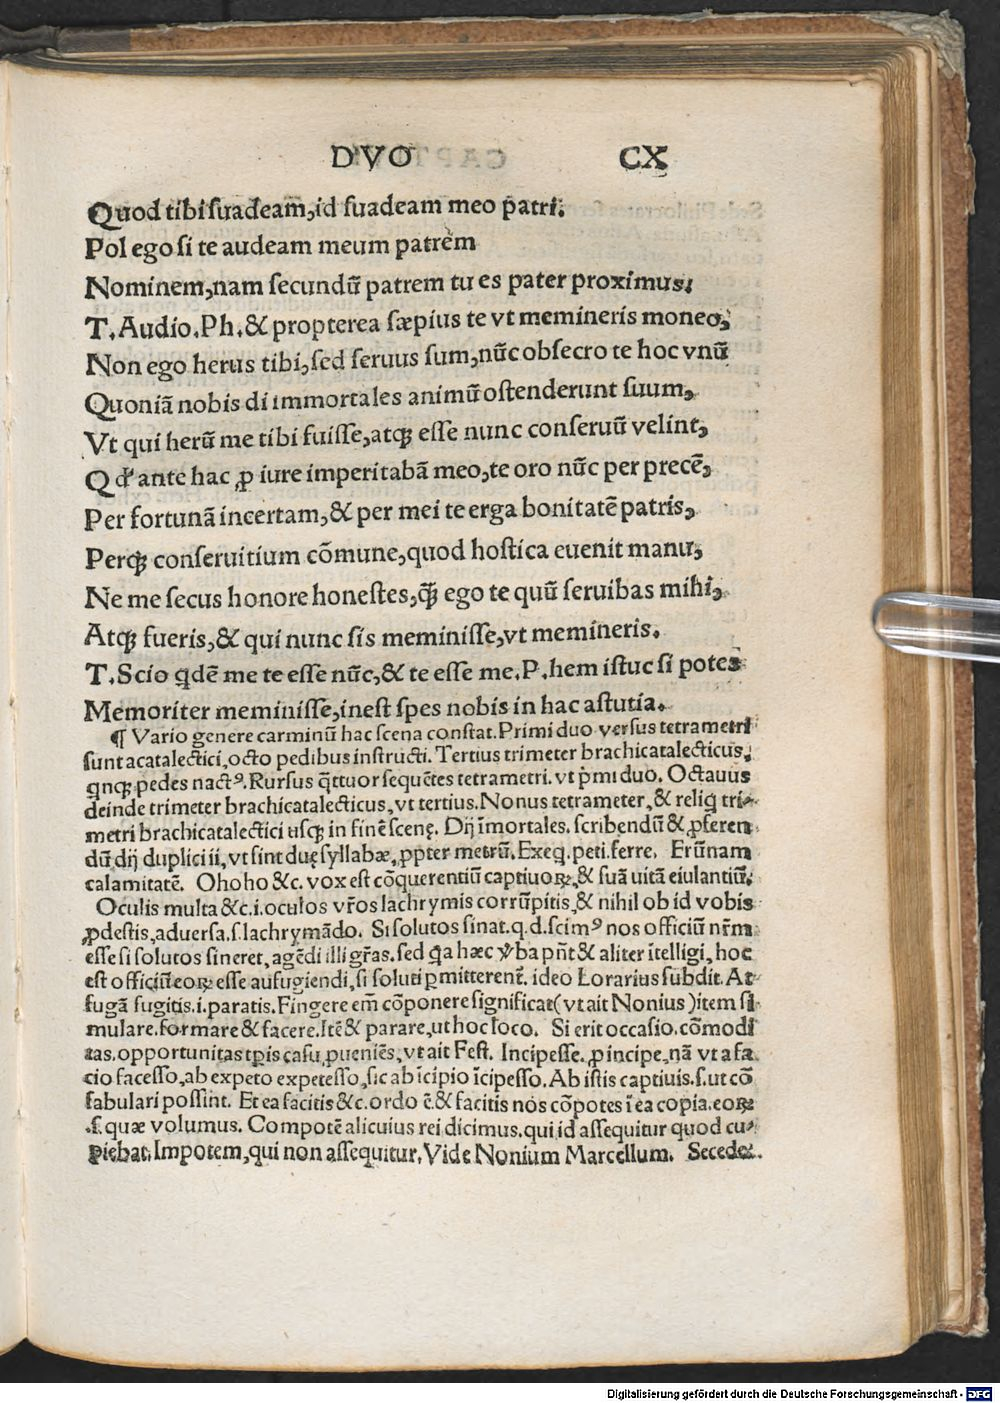 DVO CX
Quod tibi suadeam̃, id suadeam meo patri.
Pol ego si te audeam meum patrem
Nominem, nam secundũ patrem tu es pater proximus.
T. Audio. Ph. & propterea sæpius te vt memineris moneo,
Non ego herus tibi, sed seruus sum, nũc obsecro te hoc vnũ
Quoniã nobis di immortales animũ ostenderunt suum,
Vt qui herũ me tibi fuisse, atqꝫ esse nunc conseruũ velint,
Qđ ante hac ꝓ iure imperitabã meo, te oro nũc per precẽ,
Per fortunã incertam, & per mei te erga bonitatẽ patris,
Perqꝫ conseruitium cõmune, quod hostica euenit manu,
Ne me secus honore honestes, q̃ꝫ ego te quũ seruibas mihi,
Atqꝫ fueris, & qui nunc sis meminisse, vt memineris.
T. Scio qdẽ me te esse nũc, & te esse me. P. hem istuc si potes
Memoriter meminisse, inest spes nobis in hac astutia.
¶ Vario genere carminũ hac scena constat. Primi duo versus tetrametri
sunt acatalectici, octo pedibus instructi. Tertius trimeter brachicatalecticus,
qnqꝫ pedes nactꝰ. Rursus q̃ttuor sequẽtes tetrametri. vt p̃mi duo. Octauus
deinde trimeter brachicatalecticus, vt tertius. Nonus tetrameter, & reliq tri-
metri brachicatalectici usqꝫ in finẽ scenę. Dij ĩmortales. scribendũ & ꝓferen
dũ dij duplici ii, vt sint duę syllabæ, ꝓpter metrũ. Exeq. peti. ferre. Erũnam
calamitatẽ. Ohoho &c. vox est cõquerentiũ captiuoꝝ, & suã uitã eiulantiũ.
Oculis multa &c. i. oculos vr̃os lachrymis corrũpitis, & nihil ob id vobis
ꝓdestis, aduersa. s. lachrymãdo. Si solutos sinat. q. d. scimꝰ nos officiũ nr̃m
esse si solutos sineret, agẽdi illi gr̃as. sed q̃a hæc ṽba pñt & aliter ĩtelligi, hoc
est officiũ eoꝝ esse aufugiendi, si soluti ꝑmitterent̃. ideo Lorarius subdit. At
fugã fugitis. i. paratis. Fingere em̃ cõponere significat (vt ait Nonius) item si
mulare. formare & facere. Itẽ & parare, ut hoc loco. Si erit occasio. cõmodi
tas. opportunitas tp̃is casu ꝓueniẽs, vt ait Fest. Incipesse. ꝓ incipe, nã vt a fa
cio facesso, ab expeto expetesso, sic ab ĩcipio ĩcipesso. Ab istis captiuis. s. ut cõ
fabulari possint. Et ea facitis &c. ordo ẽ. & facitis nos cõpotes ĩ ea copia. eoꝝ
.s. quæ volumus. Compotẽ alicuius rei dicimus. qui id assequitur quod cu-
piebat. Impotem, qui non assequitur, Vide Nonium Marcellum. Secede.
Digitalisierung gefördert durch die Deutsche Forschungsgemeinschaft - DFG